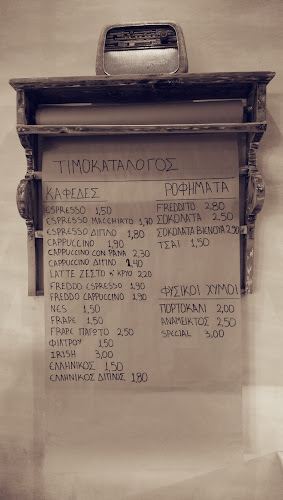 ΤΙΜΟΚΑΤΑΛΟΓΟΣ
ΚΑΦΕΔΕΣ
ESPRESSO 1,50
ESPRESSO MACCHIATO 1,70
ESPRESSO ΔΙΠΛΟ 1,80
CAPPUCCINO 1,90
CAPPUCCINO CON PANA 2,30
CAPPUCCINO ΔΙΠΛΟ 2,40
LATTE ΖΕΣΤΟ κ' ΚΡΥΟ 2,20
FREDDO ESPRESSO 1,90
FREDDO CAPPUCCINO 1,90
NES 1,50
FRAPE 1,50
FRAPE ΠΑΓΩΤΟ 2,50
ΦΙΛΤΡΟΥ 1,50
IRISH 3,00
ΕΛΛΗΝΙΚΟΣ 1,50
ΕΛΛΗΝΙΚΟΣ ΔΙΠΛΟΣ 1,80
ΡΟΦΗΜΑΤΑ
FREDDITO 2,80
ΣΟΚΟΛΑΤΑ 2,50
ΣΟΚΟΛΑΤΑ ΒΙΕΝΟΥΑ 2,90
ΤΣΑΙ 1,50
ΦΥΣΙΚΟΙ ΧΥΜΟΙ
ΠΟΡΤΟΚΑΛΙ 2,00
ΑΝΑΜΕΙΚΤΟΣ 2,50
SPECIAL 3,00